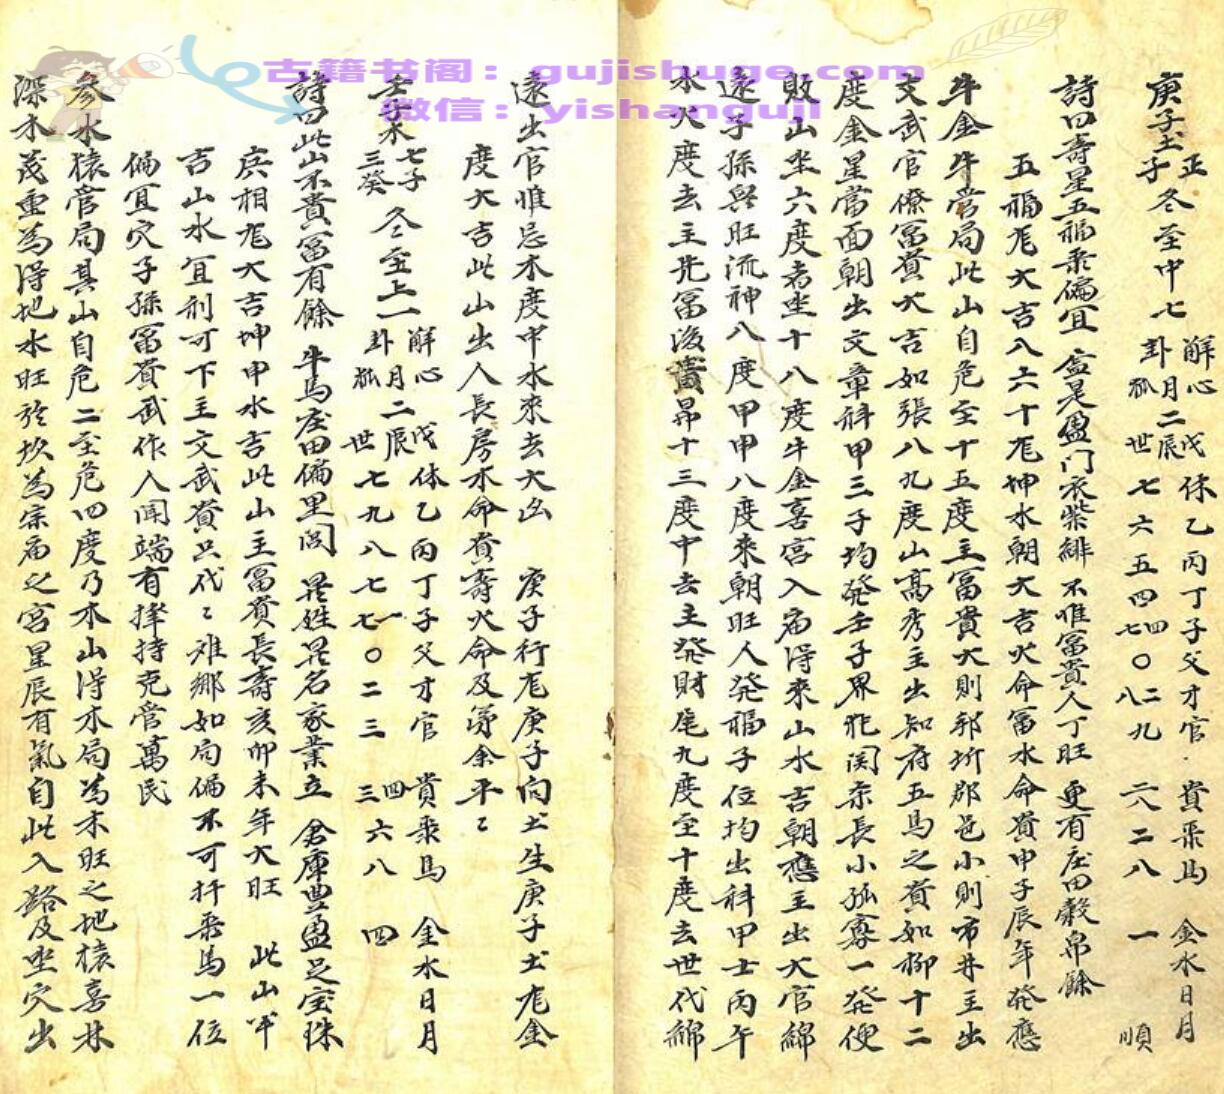 古籍书阁：gujishuge.com
微信：yishanguji
庚子土 正子 冬至中七 解心戊休乙丙丁子父才官 貴乘馬 金水日月
卦月二辰 孤 世七六五四四七〇二八九 六二八一 順
詩曰壽星五福乘偏宜 盈門衣紫緋 不惟富貴人丁旺 更有庄田穀帛餘
五福尨大吉八六十尨坤水朝大吉火命富水命貴甲子辰年發應
牛金牛管局此山自危至十五度主富貴大則邦圻郡邑小則市井主出
文武官僚富貴大吉如張八九度山高秀主出知府五馬之貴如柳十二
度金星當面朝出文章科甲三子均發壬子界非関亲長小孤寡一發便
敗山坐六度者坐十八度牛金喜宮入庙得來山水吉朝應主出大官綿
遠子孫興旺流神八度甲申八度來朝旺人發福子位均出科甲士丙午
水火度去主先富後貴昴十三度中去主發財尾九度至十度去世代綿
遠出官惟忌木度中水來去大凶 庚子行尨庚子向土生庚子土尨金
度大吉此山出人長房水命貴壽火命及第余平〻
壬子木 七子三癸 冬至上一 解心戊休乙丙丁子父才官 貴乘馬 金水日月
卦月二辰 孤 世七九八七七一〇二三 四三六八 四
詩曰此山不貴富有餘 牛馬庄田偏里闾 異姓異名家業立 倉庫豊盈足宝珠
兵相尨大吉坤申水吉此山主富貴長壽亥卯未年大旺 此山平
吉山水宜剋可下主文武貴只代〻难鄉如局偏不可扦乘馬一位
偏宜穴子孫富貴武作人聞端有擇持克管萬民
參水猿管局其山自危二至危四度乃木山得木局為木旺之地猿喜林
深木茂重為得地水旺於坎為宗庙之宮星辰有氣自此入路及坐穴出